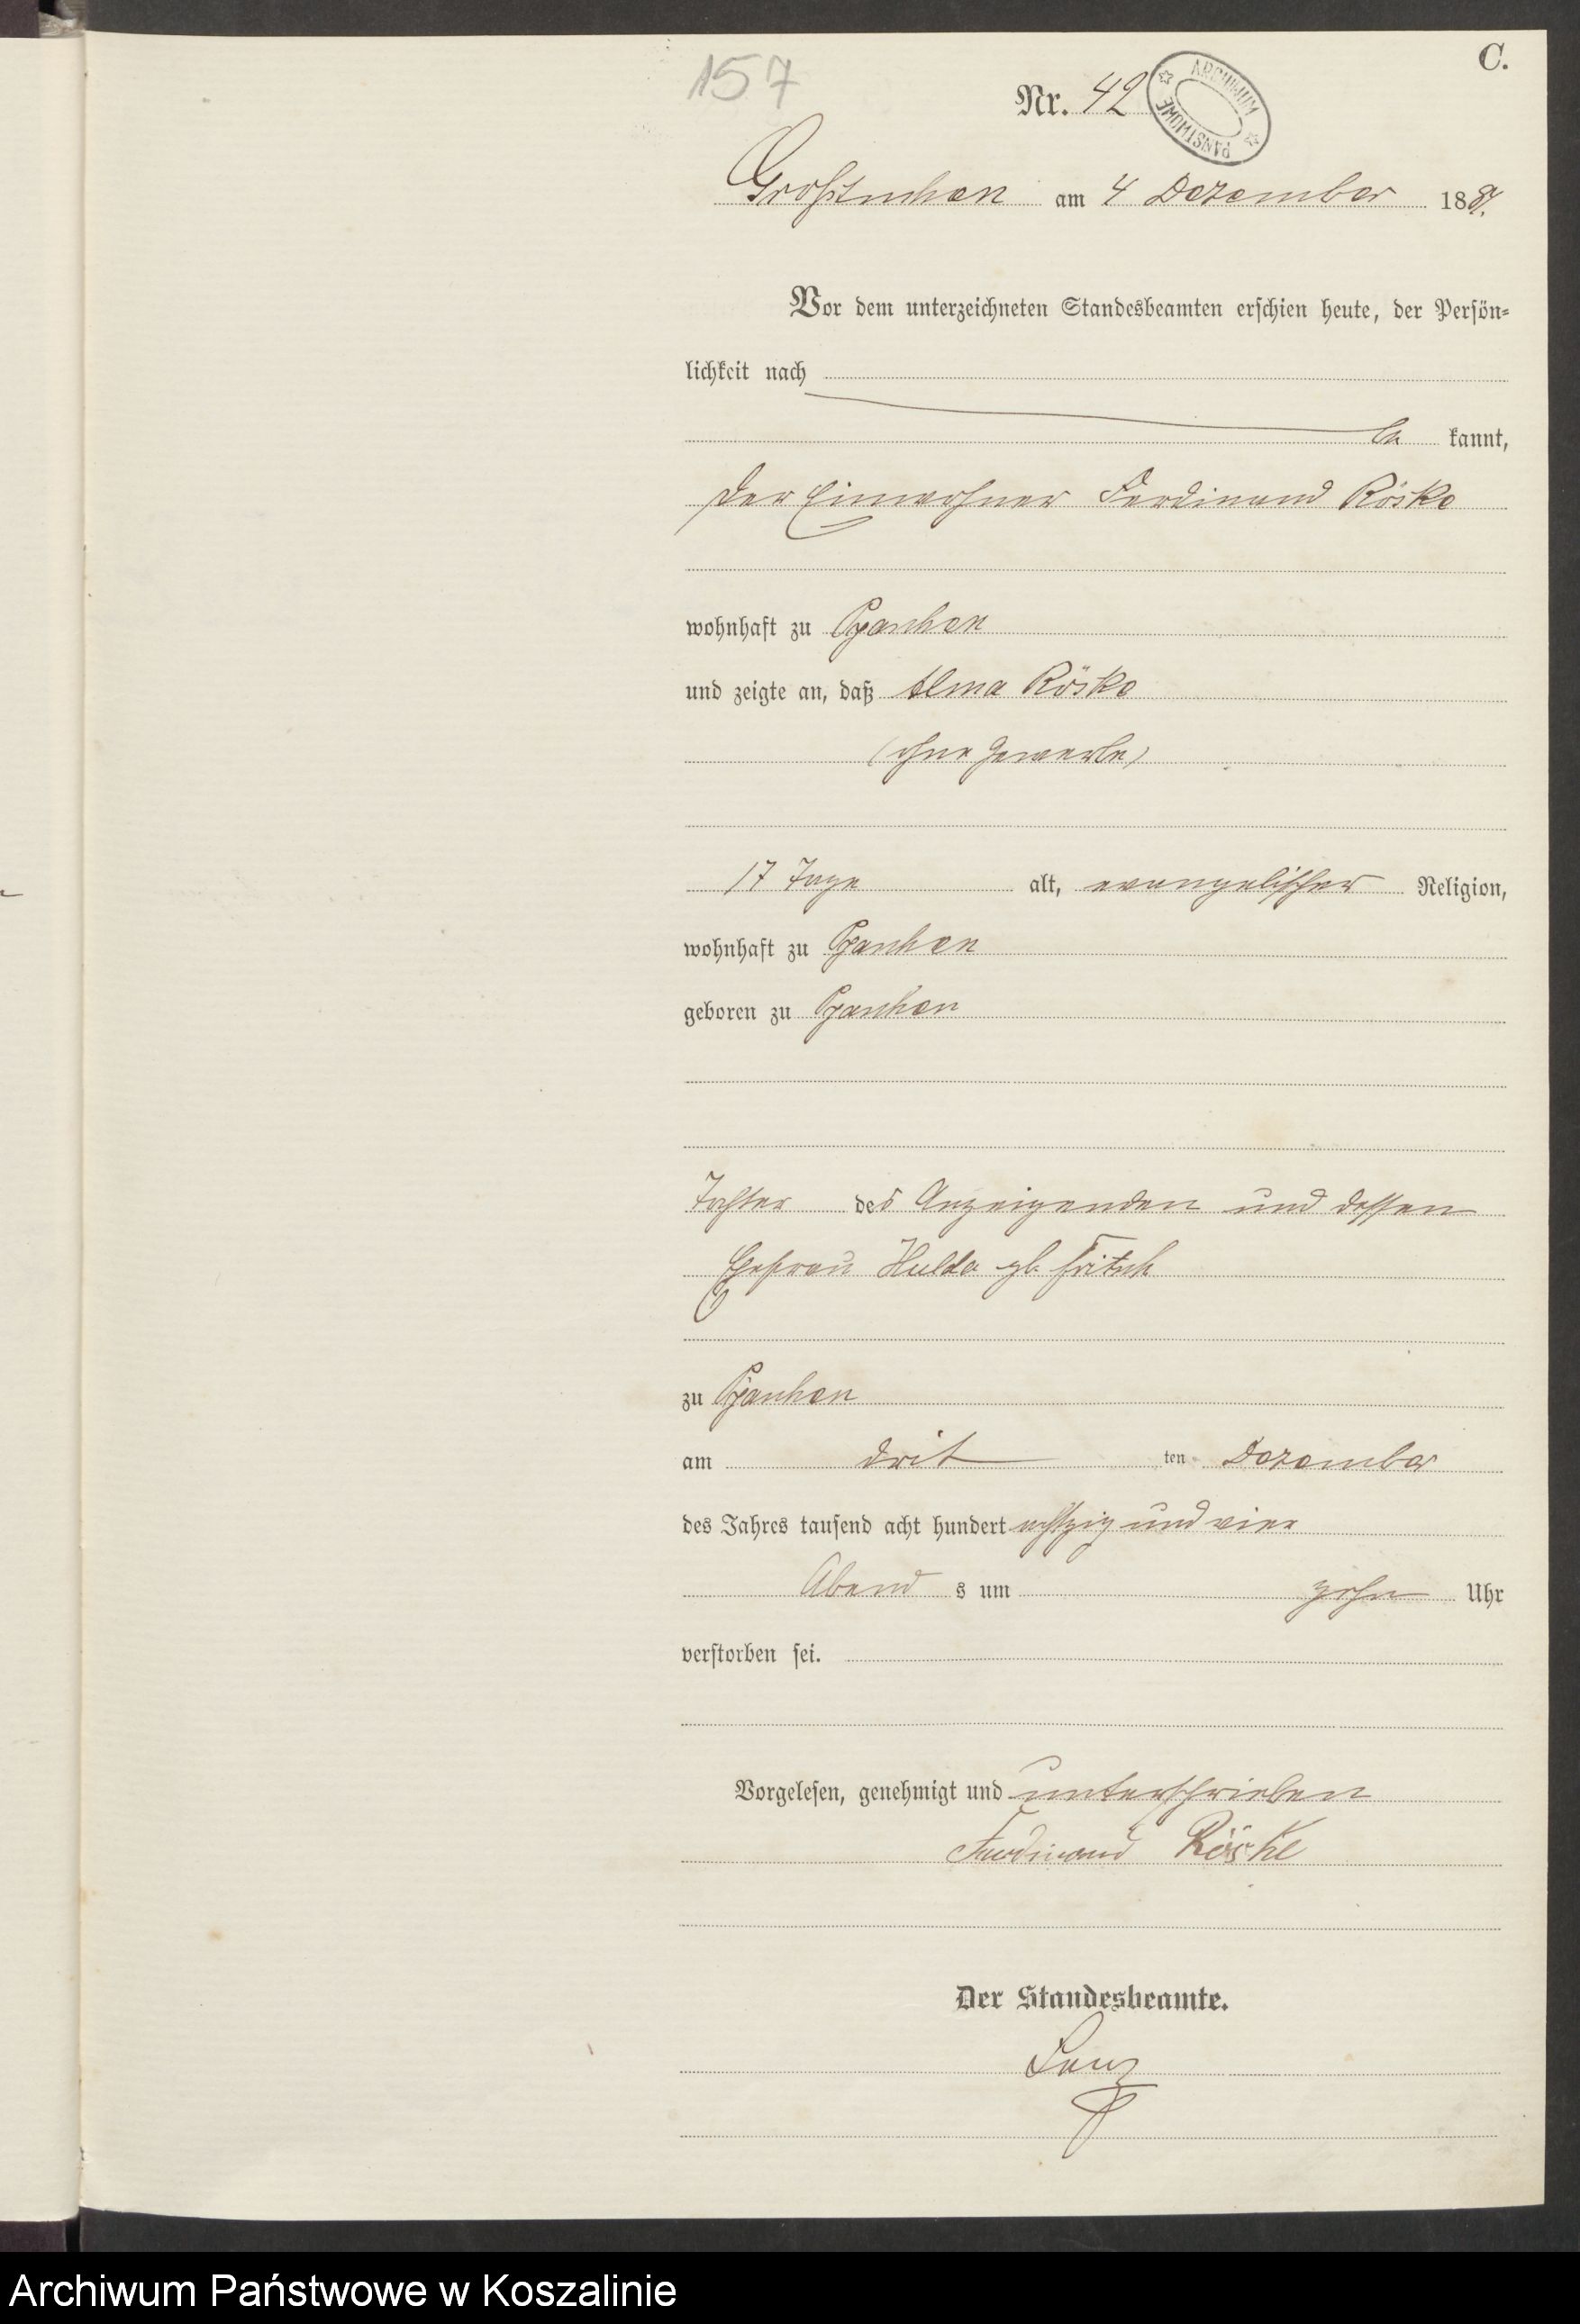 157
C.
Nr. 42
ARCHIWUM PAŃSTWOWE
Großtuchen am 4 Dezember 1884.
Vor dem unterzeichneten Standesbeamten erschien heute, der Persön-
lichkeit nach
be kannt,
der Einwohner Ferdinand Röske
wohnhaft zu
und zeigte an, daß Alma Röske
(ohne Gewerbe)
17 Tage alt, evangelischer Religion,
wohnhaft zu
geboren zu
Tochter des Anzeigenden und dessen
Ehefrau Hulda gb. Fritsch
zu
am drit ten Dezember
des Jahres tausend acht hundert achtzig und vier
Abend s um zehn Uhr
verstorben sei.
Vorgelesen, genehmigt und unterschrieben
Ferdinand Röske
Der Standesbeamte.
Archiwum Państwowe w Koszalinie